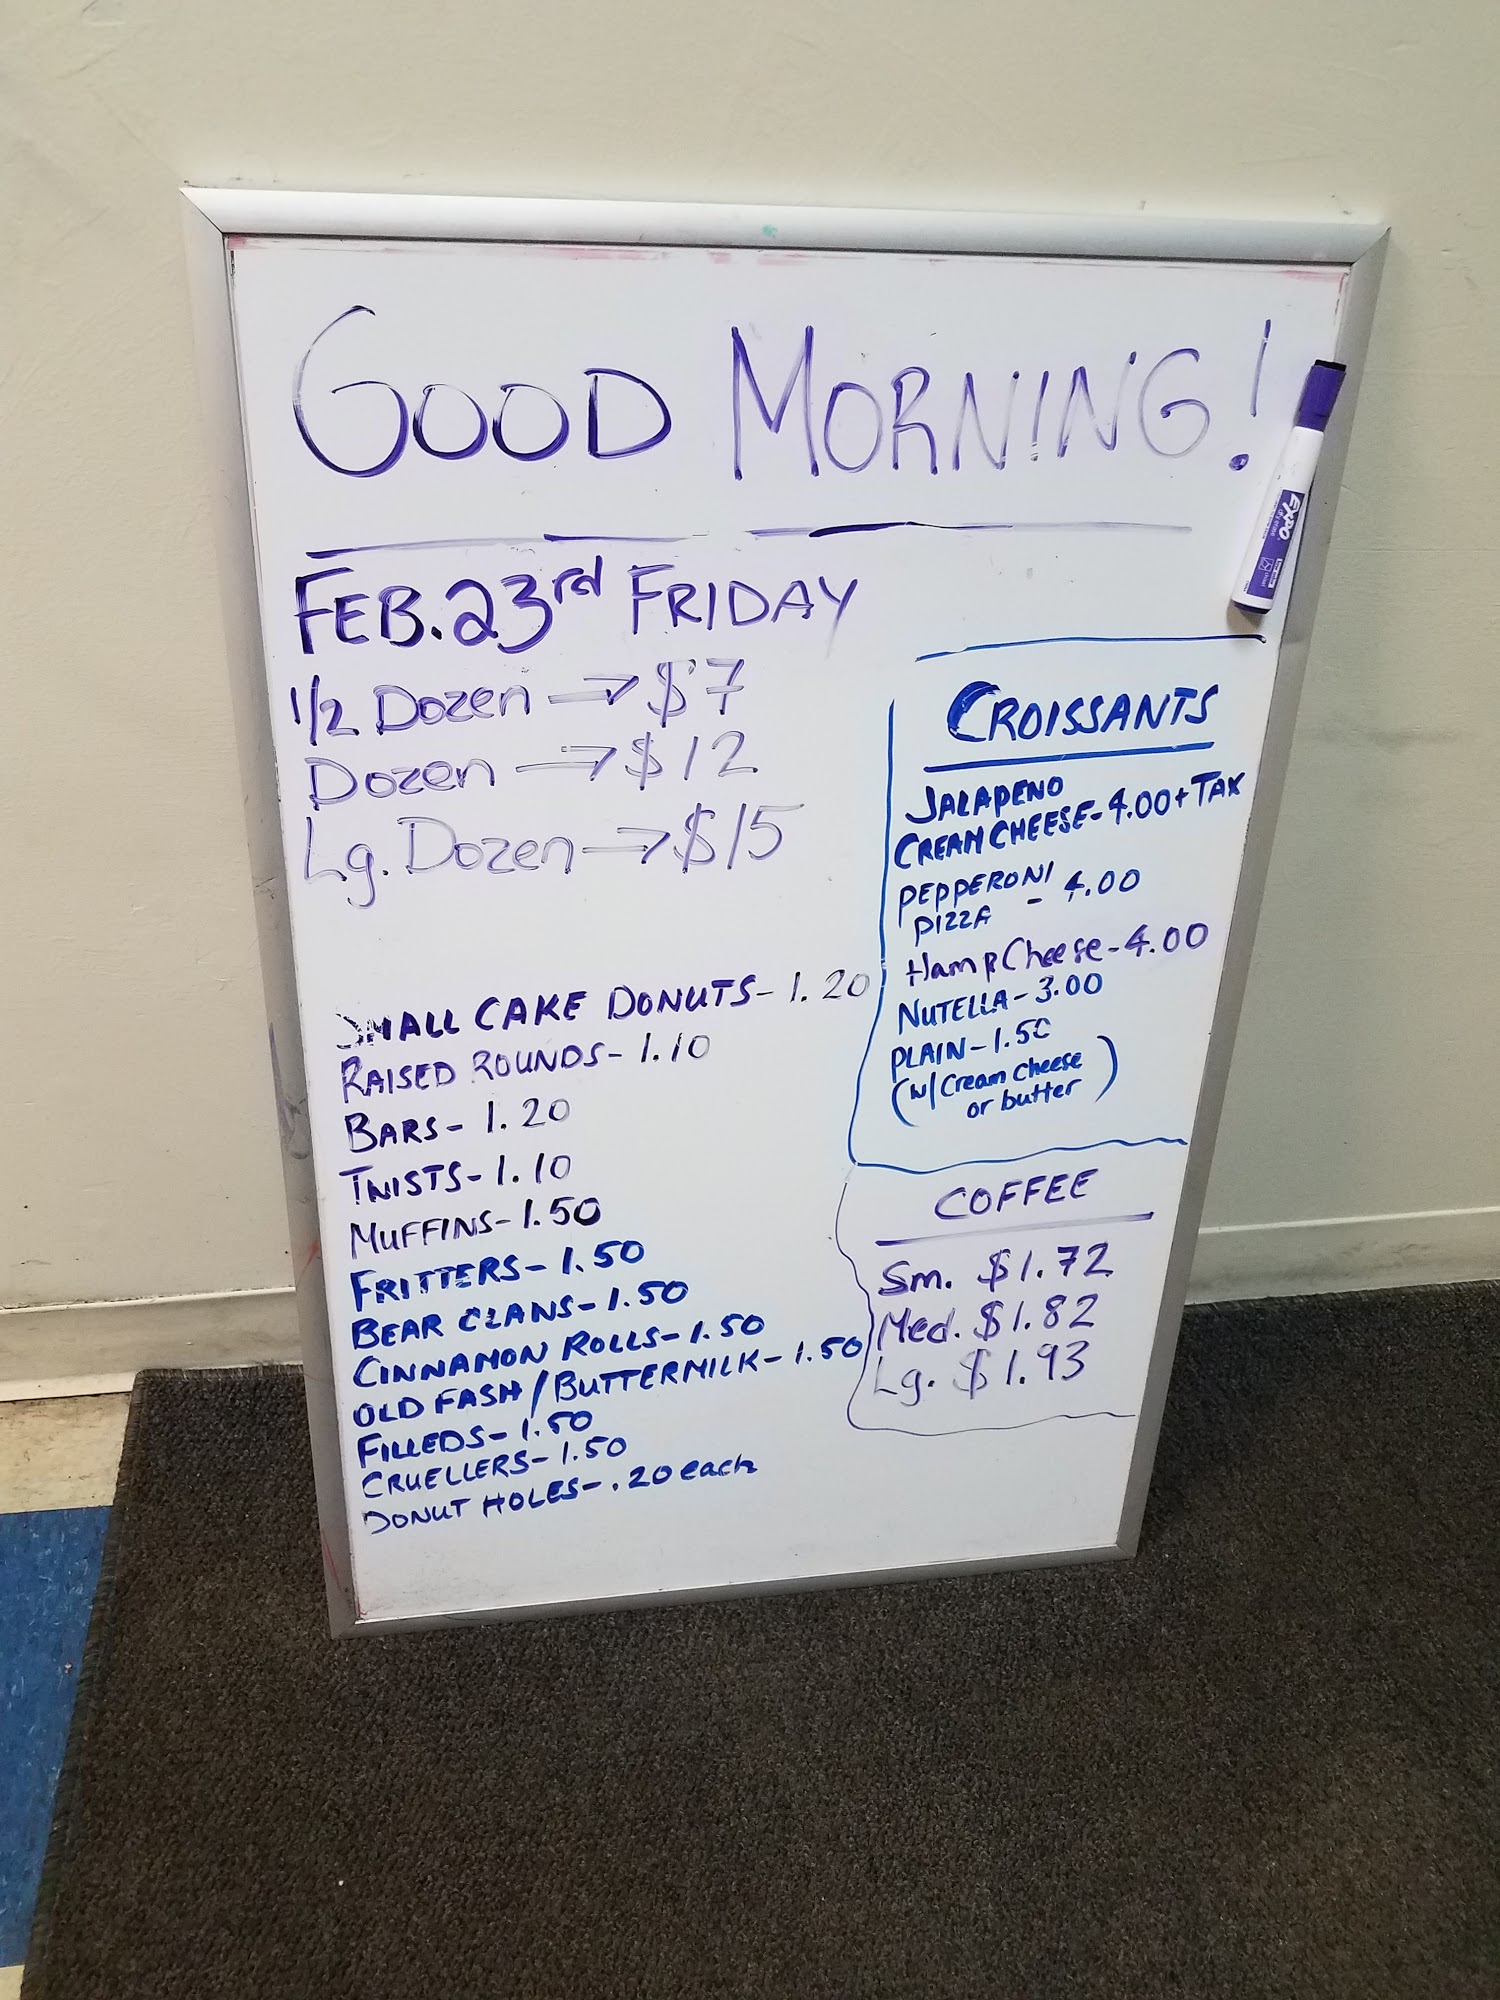 GOOD MORNING!
FEB. 23rd FRIDAY
1/2 Dozen → $7
Dozen → $12
Lg. Dozen → $15
SMALL CAKE DONUTS - 1.20
RAISED ROUNDS - 1.10
BARS - 1.20
TWISTS - 1.10
MUFFINS - 1.50
FRITTERS - 1.50
BEAR CLAWS - 1.50
CINNAMON ROLLS - 1.50
OLD FASH / BUTTERMILK - 1.50
FILLEDS - 1.50
CRUELLERS - 1.50
DONUT HOLES - .20 each
CROISSANTS
JALAPENO
CREAM CHEESE - 4.00 + TAX
PEPPERONI
PIZZA - 4.00
Ham & Cheese - 4.00
NUTELLA - 3.00
PLAIN - 1.50
(w/ Cream cheese
or butter)
COFFEE
Sm. $1.72
Med. $1.82
Lg. $1.93
EXPO